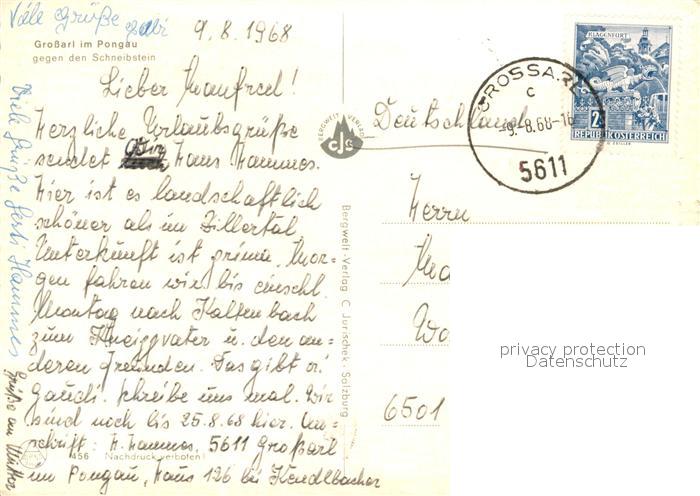 Viele Grüße
Gabi
9.8.1968
Großarl im Pongau
gegen den Schneibstein
Lieber Manfred!
Herzliche Urlaubsgrüße
sendet Dir Hans Hammes.
Hier ist es landschaftlich
schöner als im Zillertal
Unterkunft ist prima. Mor-
gen fahren wir bis einschl.
Montag nach Kaltenbach
zum Kneippvater u. den an-
deren Freunden. Das gibt
Gaudi. Schreibe uns mal. Wir
sind noch bis 25.8.68 hier. An-
schrift: H. Hammes, 5611 Großarl
im Pongau, Haus 126 bei Kendlbacher
456 Nachdruck verboten!
Viele Grüße Gerti Hammes
Grüße an Mutter
BERGWELT VERLAG
CJS
Bergwelt-Verlag C. Jurischek · Salzburg
KLAGENFURT
2S
REPUBLIK ÖSTERREICH
GROSSARL
C
-9.-8.68-16
5611
Deutschland
Herrn
Ma
Wo
6501
privacy protection
Datenschutz